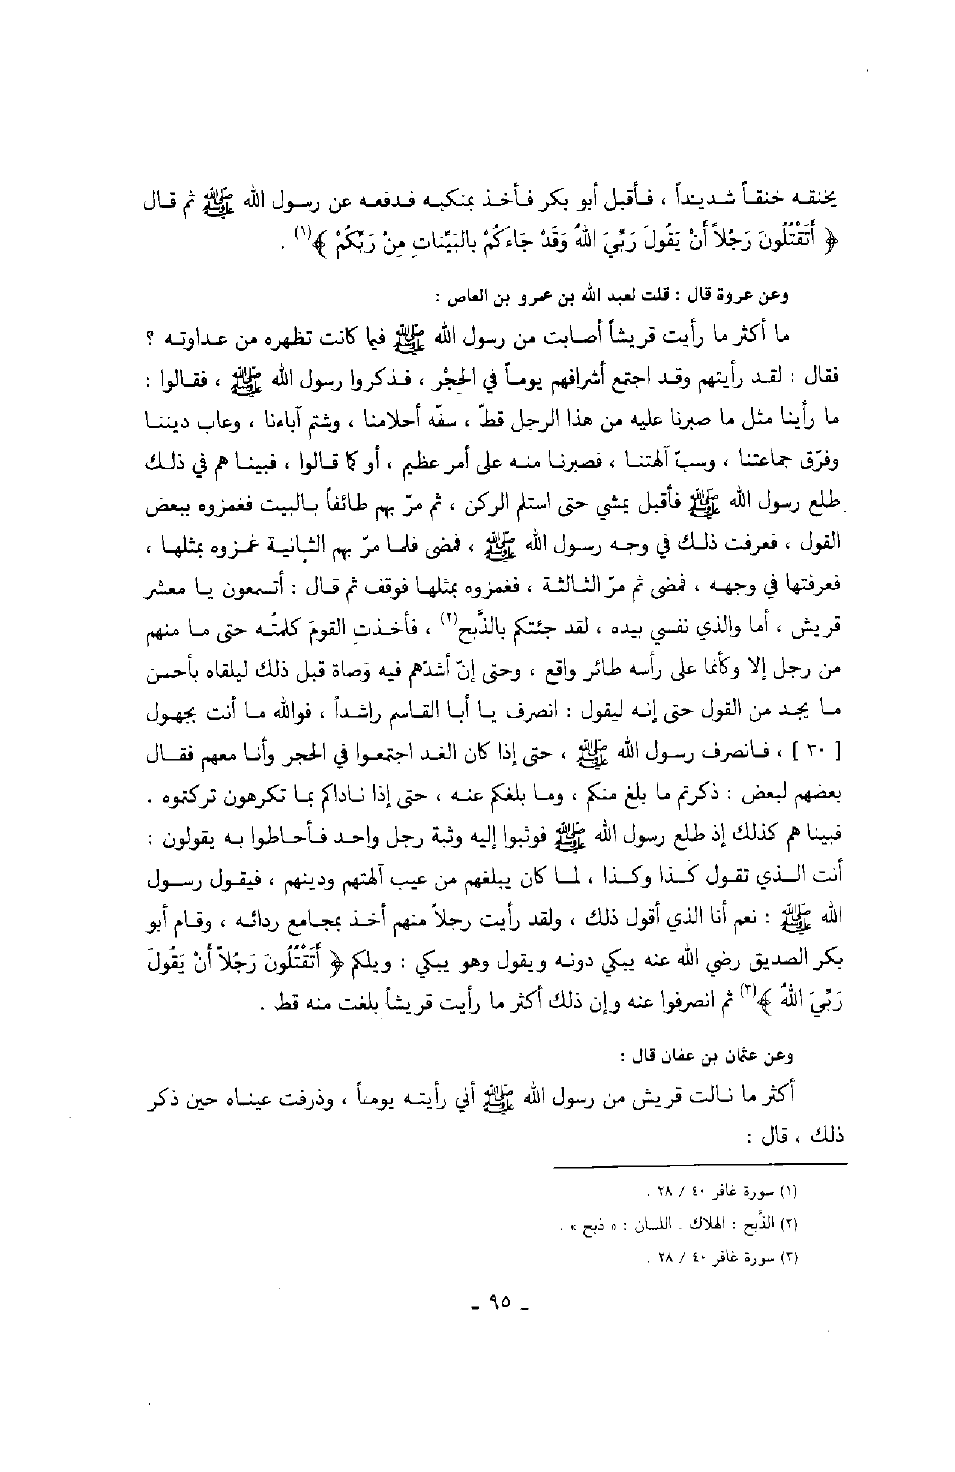 يخنقه خنقاً شديداً ، فأقبل أبو بكر فأخذ بمنكبه فدفعه عن رسول الله ﷺ ثم قال
﴿ أَتَقْتُلُونَ رَجُلاً أَنْ يَقُولَ رَبِّيَ اللهُ وَقَدْ جَاءَكُمْ بالبَيِّنَاتِ مِنْ رَبِّكُمْ ﴾(١) .
وعن عروة قال : قلت لعبد الله بن عمرو بن العاص :
ما أكثر ما رأيت قريشاً أصابت من رسول الله ﷺ فيما كانت تظهره من عداوته ؟
فقال : لقد رأيتهم وقد اجتمع أشرافهم يوماً في الحِجْر ، فذكروا رسول الله ﷺ ، فقالوا :
ما رأينا مثل ما صبرنا عليه من هذا الرجل قطّ ، سفّه أحلامنا ، وشتم آباءنا ، وعاب ديننا
وفرّق جماعتنا ، وسبّ آلهتنا ، فصبرنا منه على أمر عظيم ، أو كما قالوا ، فبينا هم في ذلك
طلع رسول الله ﷺ فأقبل يمشي حتى استلم الركن ، ثم مرّ بهم طائفاً بالبيت فغمزوه ببعض
القول ، فعرفت ذلك في وجه رسول الله ﷺ ، فمضى فلما مرّ بهم الثانية غمزوه بمثلها ،
فعرفتها في وجهه ، فمضى ثم مرّ الثالثة ، فغمزوه بمثلها فوقف ثم قال : أتسمعون يا معشر
قريش ، أما والذي نفسي بيده ، لقد جئتكم بالذَّبح(٢) ، فأخذتِ القومَ كلمتُه حتى ما منهم
من رجل إلا وكأنما على رأسه طائر واقع ، وحتى إنّ أشدّهم فيه وَصاة قبل ذلك ليلقاه بأحسن
ما يجد من القول حتى إنه ليقول : انصرف يا أبا القاسم راشداً ، فوالله ما أنت بجهول
[ ٣٠ ] ، فانصرف رسول الله ﷺ ، حتى إذا كان الغد اجتمعوا في الحجر وأنا معهم فقال
بعضهم لبعض : ذكرتم ما بلغ منكم ، وما بلغكم عنه ، حتى إذا ناداكم بما تكرهون تركتموه .
فبينا هم كذلك إذ طلع رسول الله ﷺ فوثبوا إليه وثبة رجل واحد فأحاطوا به يقولون :
أنت الذي تقول كذا وكذا ، لما كان يبلغهم من عيب آلهتهم ودينهم ، فيقول رسول
الله ﷺ : نعم أنا الذي أقول ذلك ، ولقد رأيت رجلاً منهم أخذ بمجامع ردائه ، وقام أبو
بكر الصديق رضي الله عنه يبكي دونه ويقول وهو يبكي : ويلكم ﴿ أَتَقْتُلُونَ رَجُلاً أَنْ يَقُولَ
رَبِّيَ اللهُ ﴾(٣) ثم انصرفوا عنه وإن ذلك أكثر ما رأيت قريشاً بلغت منه قط .
وعن عثمان بن عفان قال :
أكثر ما نالت قريش من رسول الله ﷺ أني رأيته يوماً ، وذرفت عيناه حين ذكر
ذلك ، قال :
(١) سورة غافر ٤٠ / ٢٨ .
(٢) الذَّبح : الهلاك . اللسان : « ذبح » .
(٣) سورة غافر ٤٠ / ٢٨ .
_ ٩٥ _